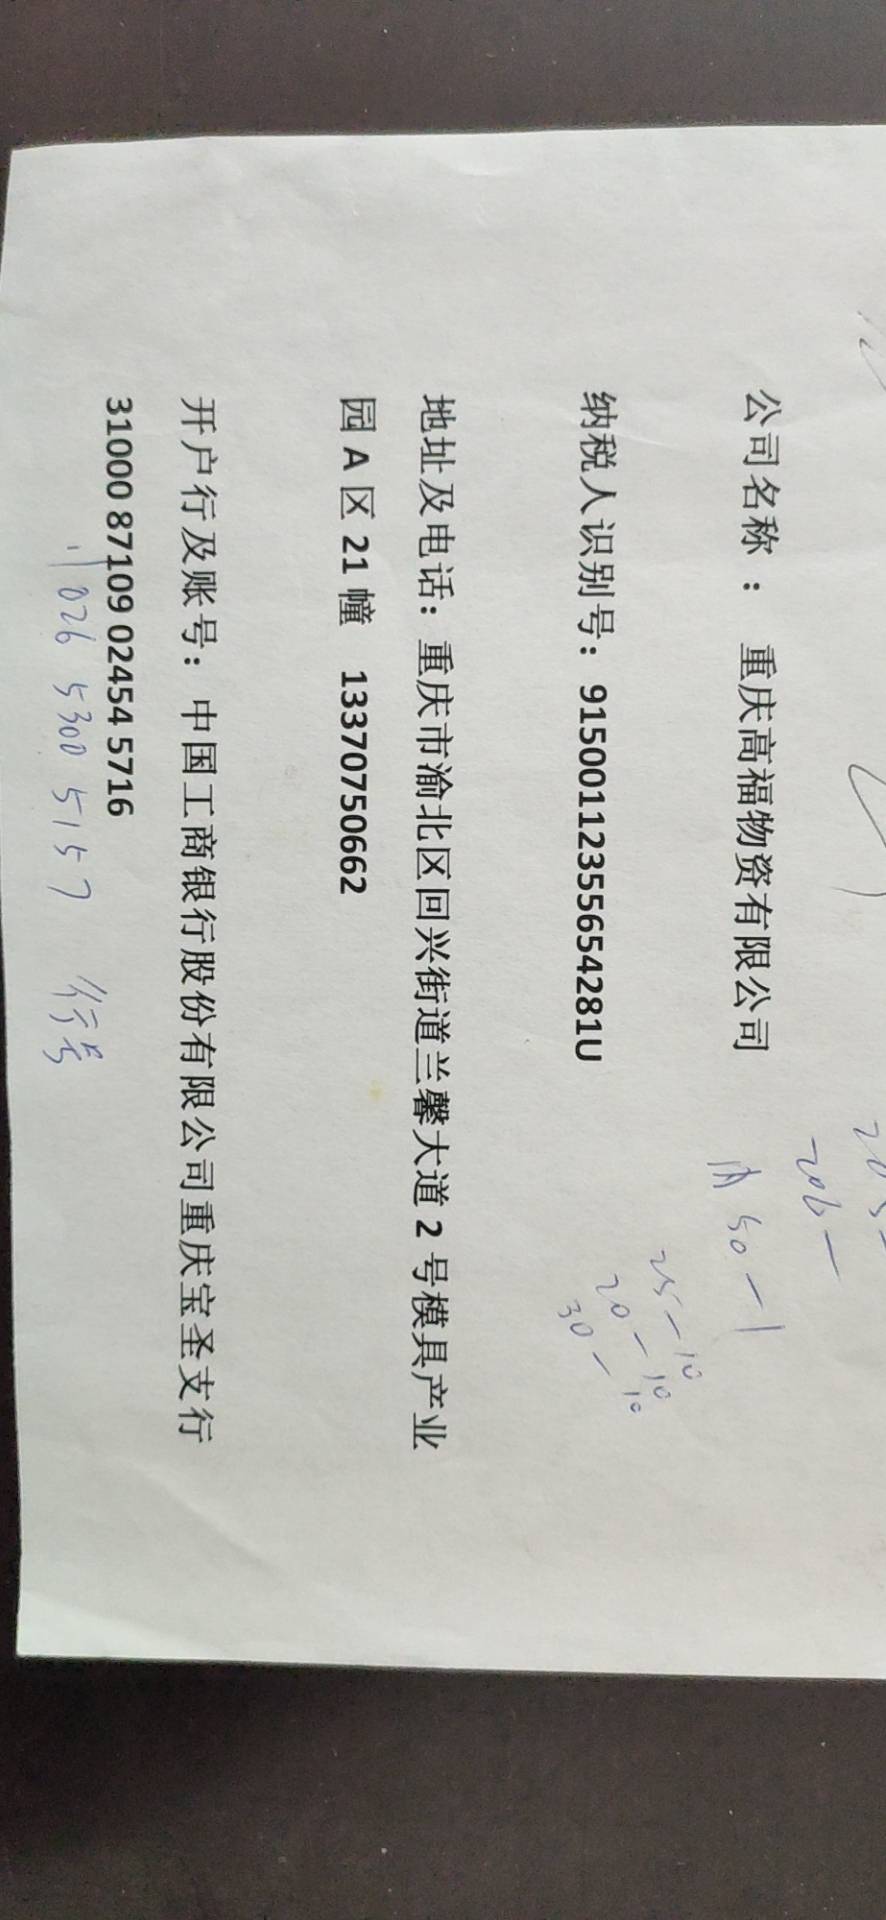 205-
206-
公司名称 : 重庆高福物资有限公司
内 50-1
25-10
20-10
30-10
纳税人识别号: 91500112355654281U
地址及电话: 重庆市渝北区回兴街道兰馨大道 2 号模具产业
园 A 区 21 幢 13370750662
开户行及账号: 中国工商银行股份有限公司重庆宝圣支行
31000 87109 02454 5716
026 5300 5157 行号